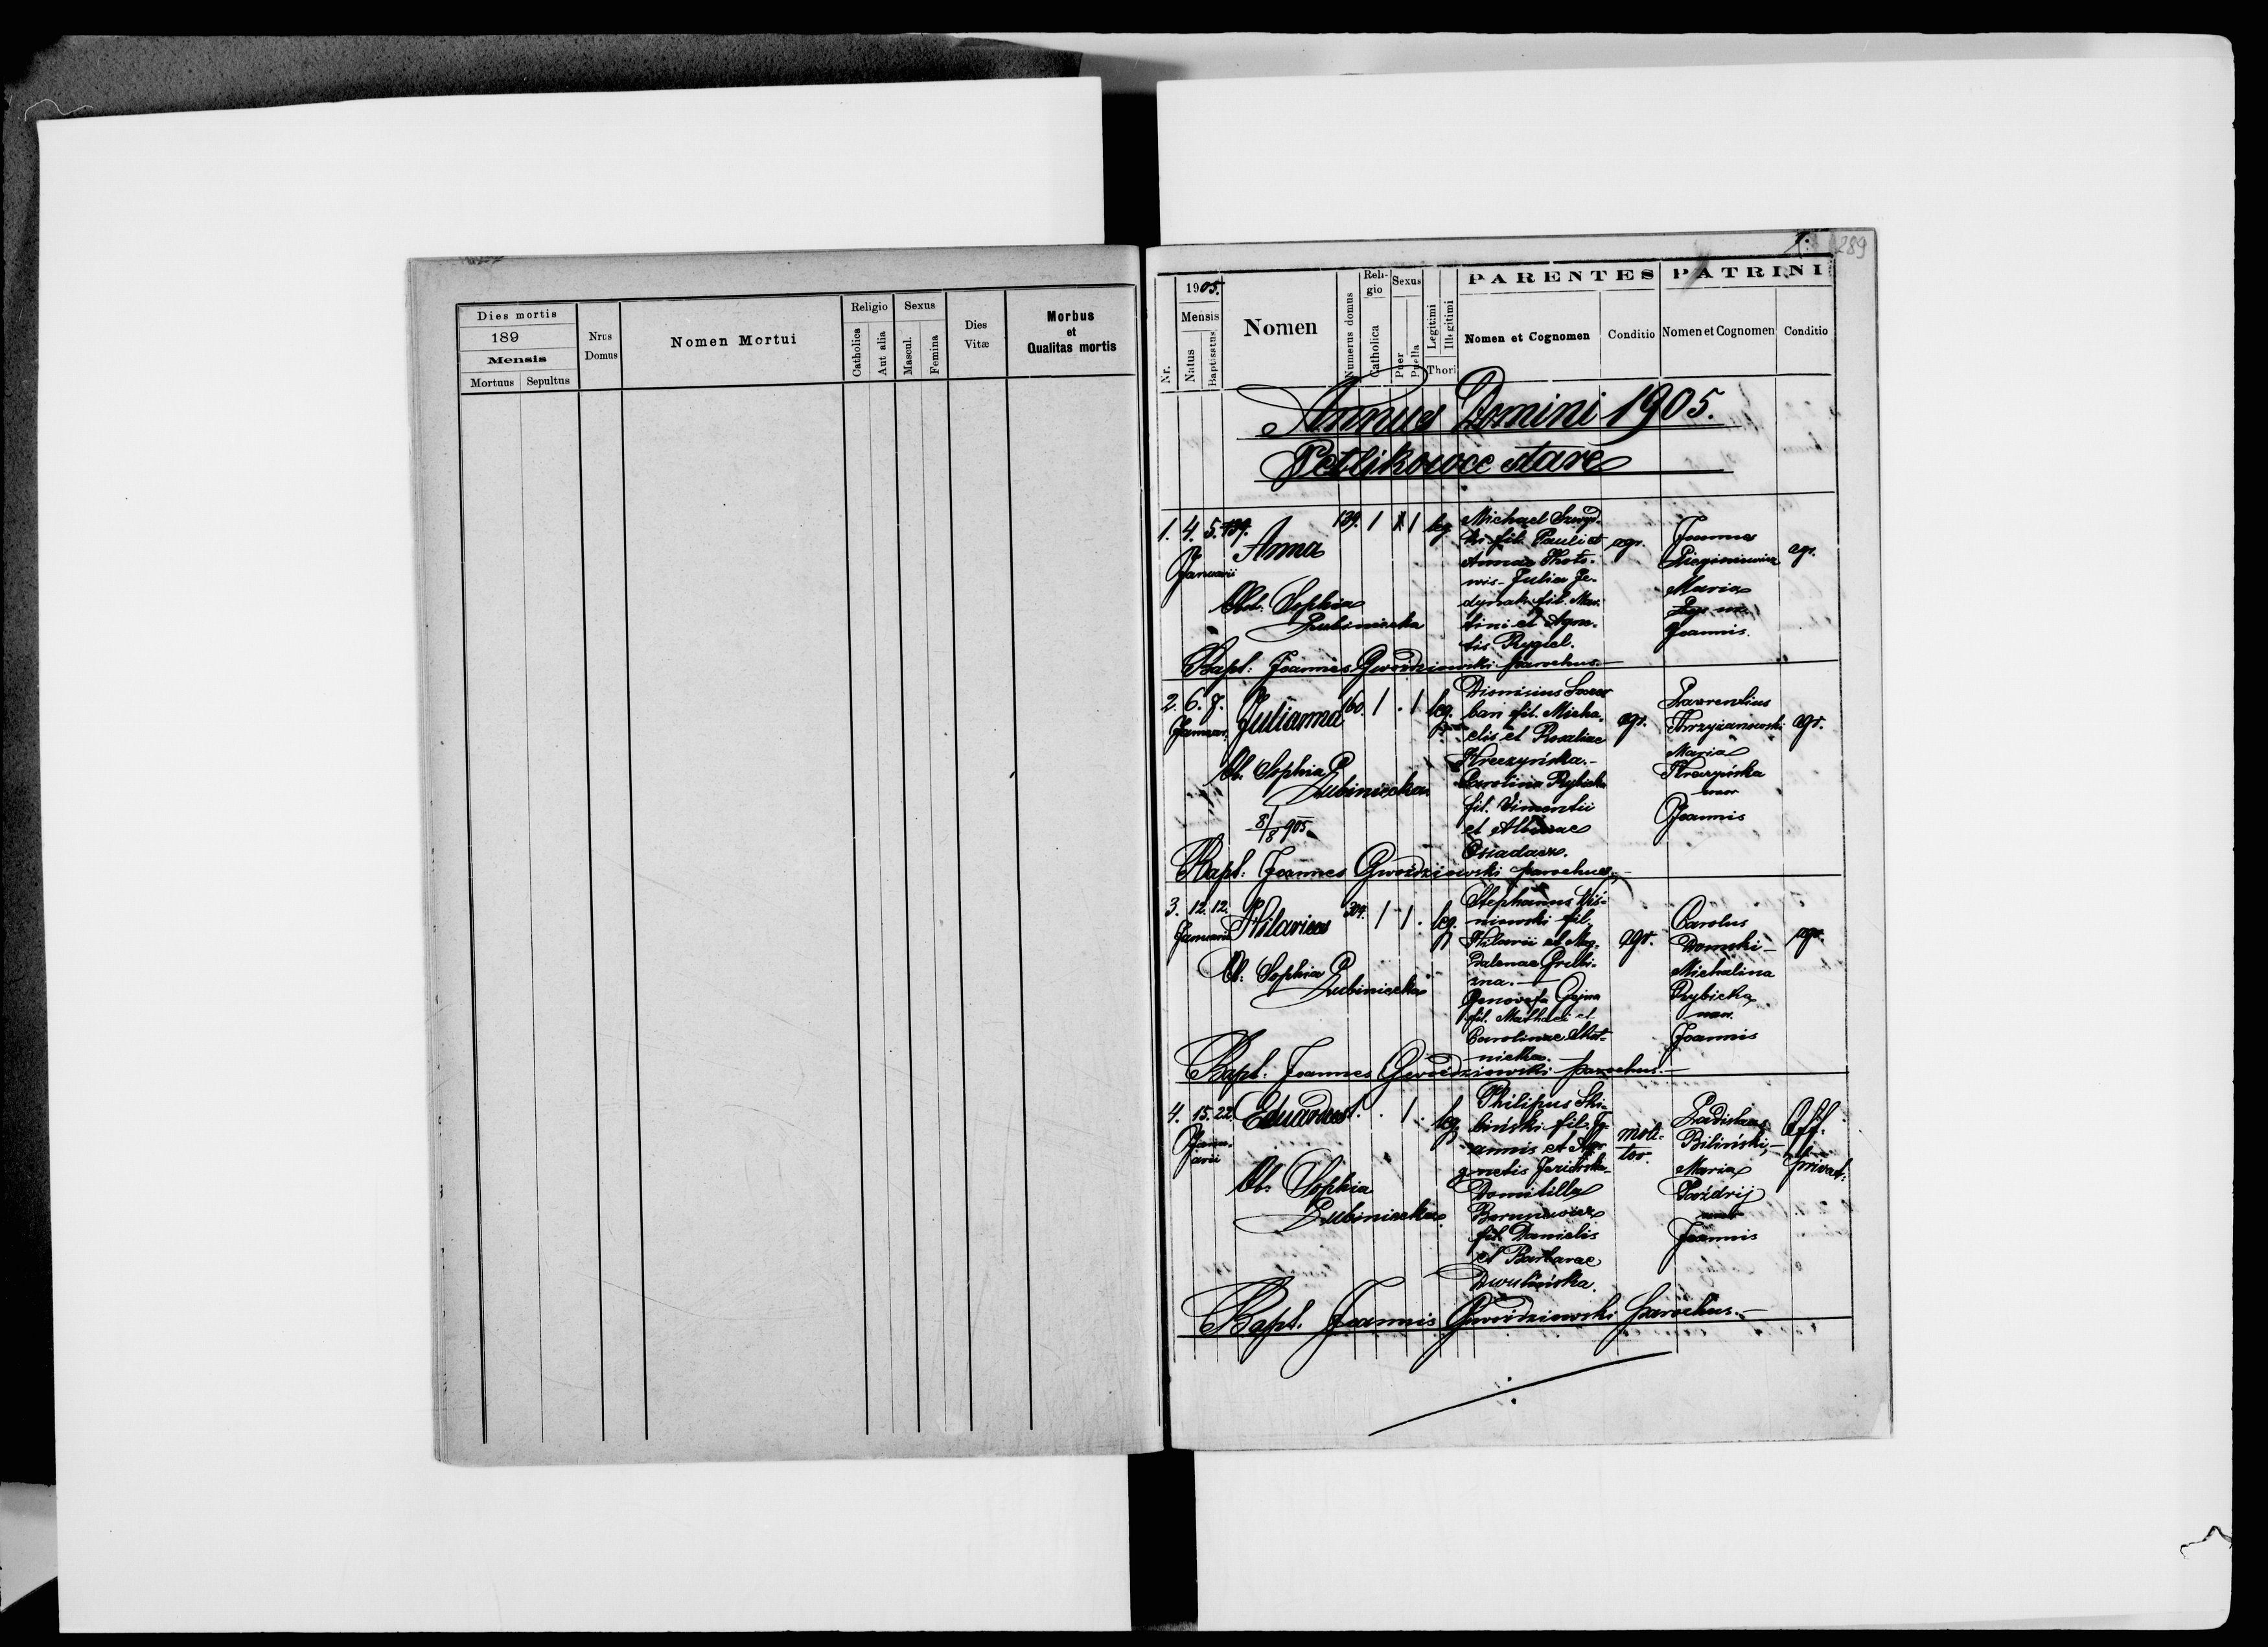 Dies mortis
189
Mensis
Mortuus Sepultus
Nrus Domus
Nomen Mortui
Religio
Catholica
Aut alia
Sexus
Mascul.
Femina
Dies Vitæ
Morbus et Qualitas mortis
289
Nr.
1905.
Mensis
Natus
Baptisatus
Nomen
Numerus domus
Religio
Catholica
Sexus
Puer
Puella
Legitimi
Illegitimi
Thori
PARENTES
Nomen et Cognomen
Conditio
PATRINI
Nomen et Cognomen
Conditio
Annus Domini 1905.
Petlikowce stare
1. 4. 5. 139.
Januarii
Anna
139. 1 1 leg.
Obst. Sophia
Lubiniecka
Michael
fil. Pauli et
Annae
Julia Je-
dynak fil. Mar-
tini et Agne-
tis Rygiel.
agr.
Joannes
Maria
Joannis.
agr.
Bapt: Joannes Gwoździowski parochus.
2. 6. 7.
Januar.
Julianna
160. 1 . 1 leg.
Ob. Sophia
Lubiniecka
8/8 905
Dionisius
fil. Micha-
elis et Rosaliae
Kreczyńska.-
Carolina Rybicka
fil. Vincentii
et Albinae
Osiadacz.
agr.
Laurentius
Krzyżanowski
Maria
Kreczyńska
uxor
Joannis
agr.
Bapt: Joannes Gwoździowski parochus.-
3. 12. 12.
Januarii
Hilarius
304. 1 1 . leg.
Ob: Sophia
Lubiniecka
Stephanus Wiś-
niowski fil.
Hilarii et Mag-
dalenae
Genovefa Gajna
fil. Mathaei et
Carolinae Skot-
nicka.
agr.
Carolus
Domski-
Michalina
Rybicka
uxor.
Joannis
agr.
Bapt: Joannes Gwoździowski parochus.-
4. 15. 22.
Janu-
arii
Eduardus
1 . leg.
Ob. Sophia
Lubiniecka
Philipus Ski-
biński fil. Jo-
annis et A-
gnetis
Domitilla
fil. Danielis
et Barbarae
moli-
tor.
Ladislaus
Biliński,-
Maria
uxor
Joannis
Off:
privat:
Bapt. Joannis Gwoździowski parochus.-